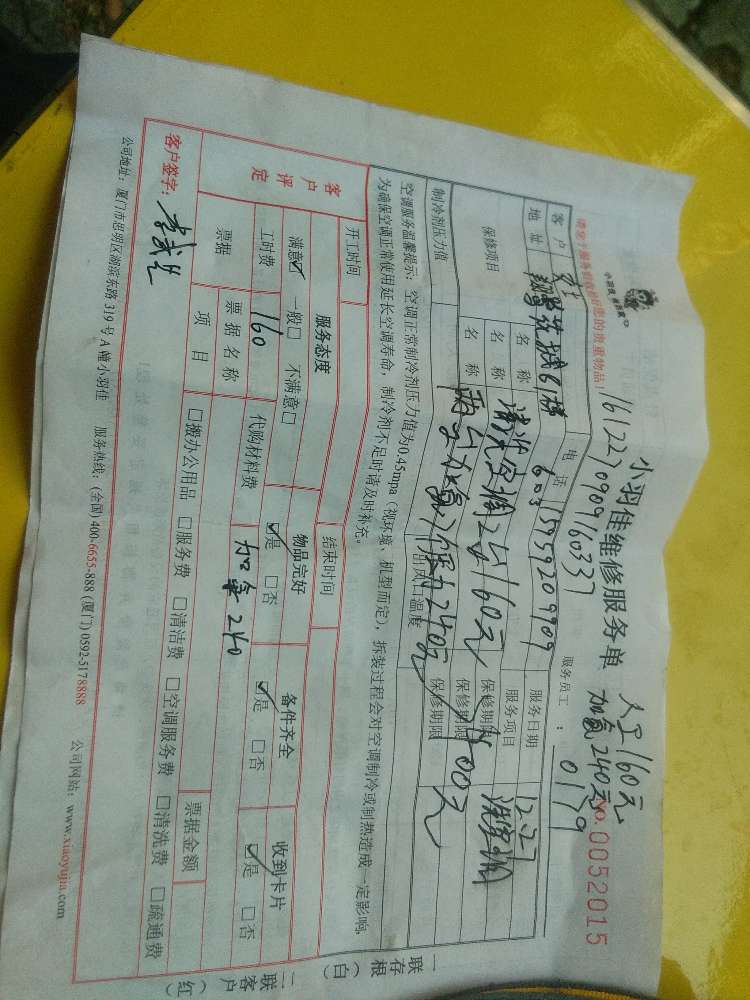 小羽佳维修服务单
人工160元
加氨240元
No.0052015
161227090916033
服务员工：0179
小羽佳 家政寓心
请您于服务前收拾好您的贵重物品！
客户 电话 15959209909 服务日期 12.27
地址 603 服务项目 洗空调
保修项目 名称 清洗空调2台160元 保修期限
名称 保修期限 400元
两台加氨 240元
制冷剂压力值 出风口温度 保修期限
空调服务温馨提示：空调正常制冷剂压力值为0.45mpa（视环境、机型而定），拆装过程会对空调制冷或制热造成一定影响，
为确保空调正常使用延长空调寿命，制冷剂不足时请及时补充。
开工时间 结束时间
客户评定 服务态度 物品完好 备件齐全 收到卡片
满意☑ 一般□ 不满意□ ☑是 □否 ☑是 □否 ☑是 □否
工时费 160 代购材料费 加氨240
票据 票据名称 票据金额
项目 □搬办公用品 □服务费 □清洁费 □空调服务费 □清洗费 □疏通费
客户签字：
公司地址：厦门市思明区湖滨东路319号A幢小羽佳 服务热线：(全国)400-6655-888 (厦门)0592-5178888 公司网站：www.xiaoyujia.com
一联存根（白）
二联客户（红